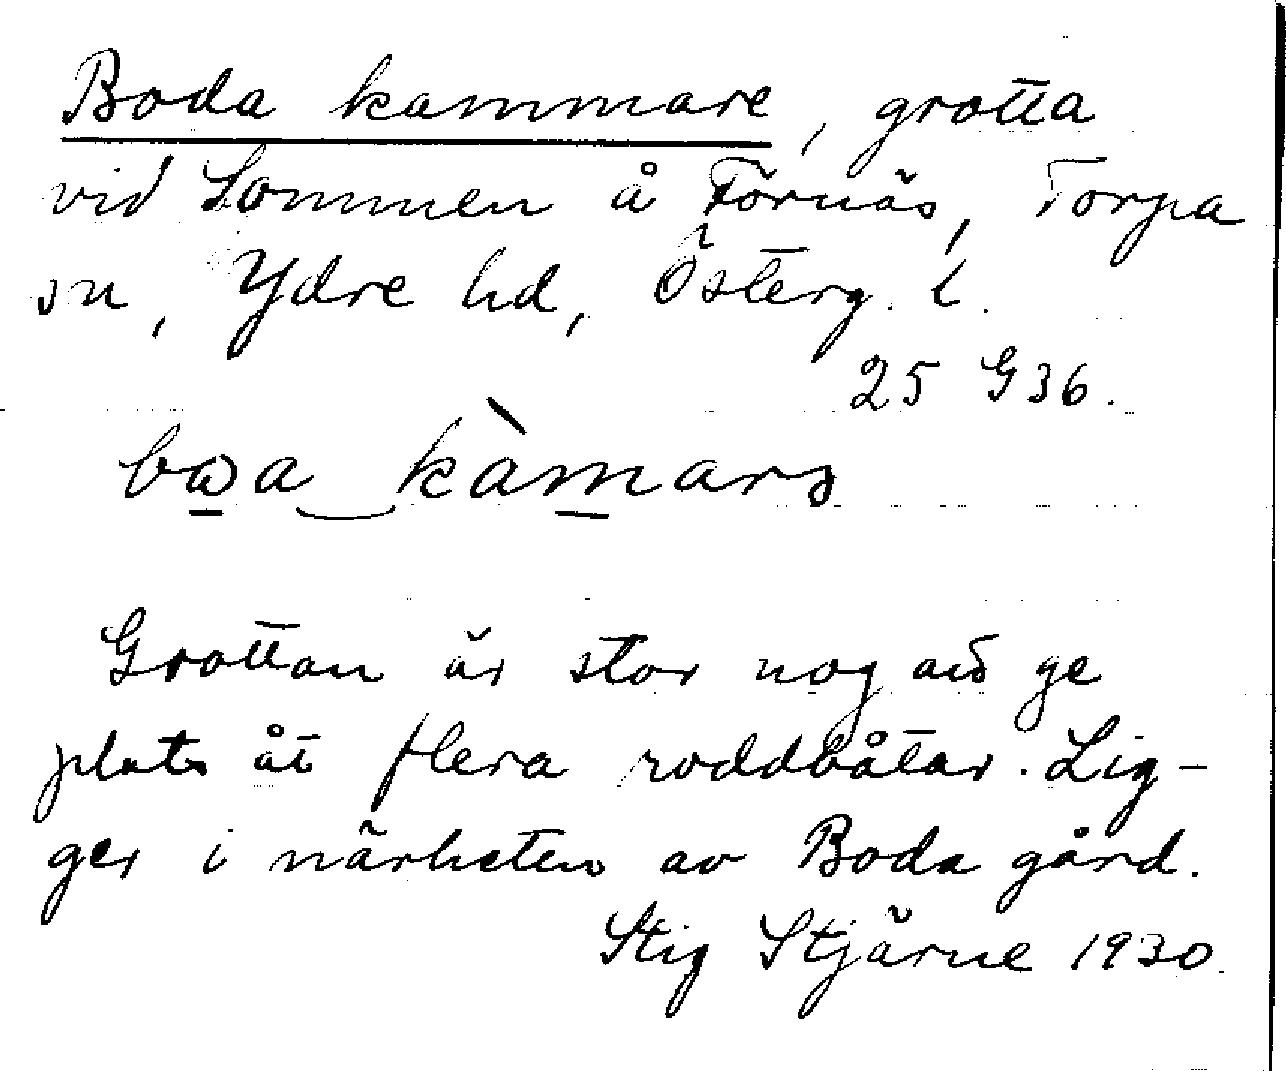 Boda kammare, grotta
vid Sommen åFörnäs, Torpa
sn, Ydre hd, Österg. l.
25 G36.
Grottan är stor nog att ge
plats åt flera roddbåtar. Lig-
ger i närheten av Boda gård.
Stig Stjärne 1930